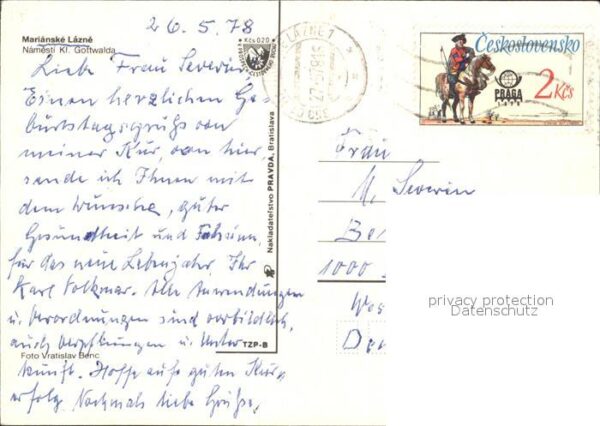 26.5.78
Mariánské Lázně
Náměstí Kl. Gottwalda
Liebe Frau Severin,
Einen herzlichen Ge-
burtstagsgruß von
meiner Kur, von hier,
sende ich Ihnen mit
dem Wunsche, guter
Gesundheit und
für das neue Lebensjahr, Ihr
Karl Volkmar. Alle Anwendungen
u. Verordnungen sind vorbildlich,
auch Verpflegungen u. Unter
kunft. Hoffe auf guten Kur-
erfolg Nochmals liebe Grüße,
Foto Vratislav Benc
Kčs 0,20
Nakladateľstvo PRAVDA, Bratislava
TZP-B
LÁZNĚ 1
Československo
PRAGA
1978
2 Kčs
Frau
M. Severin
Ber
1000
Wes
privacy protection
Datenschutz